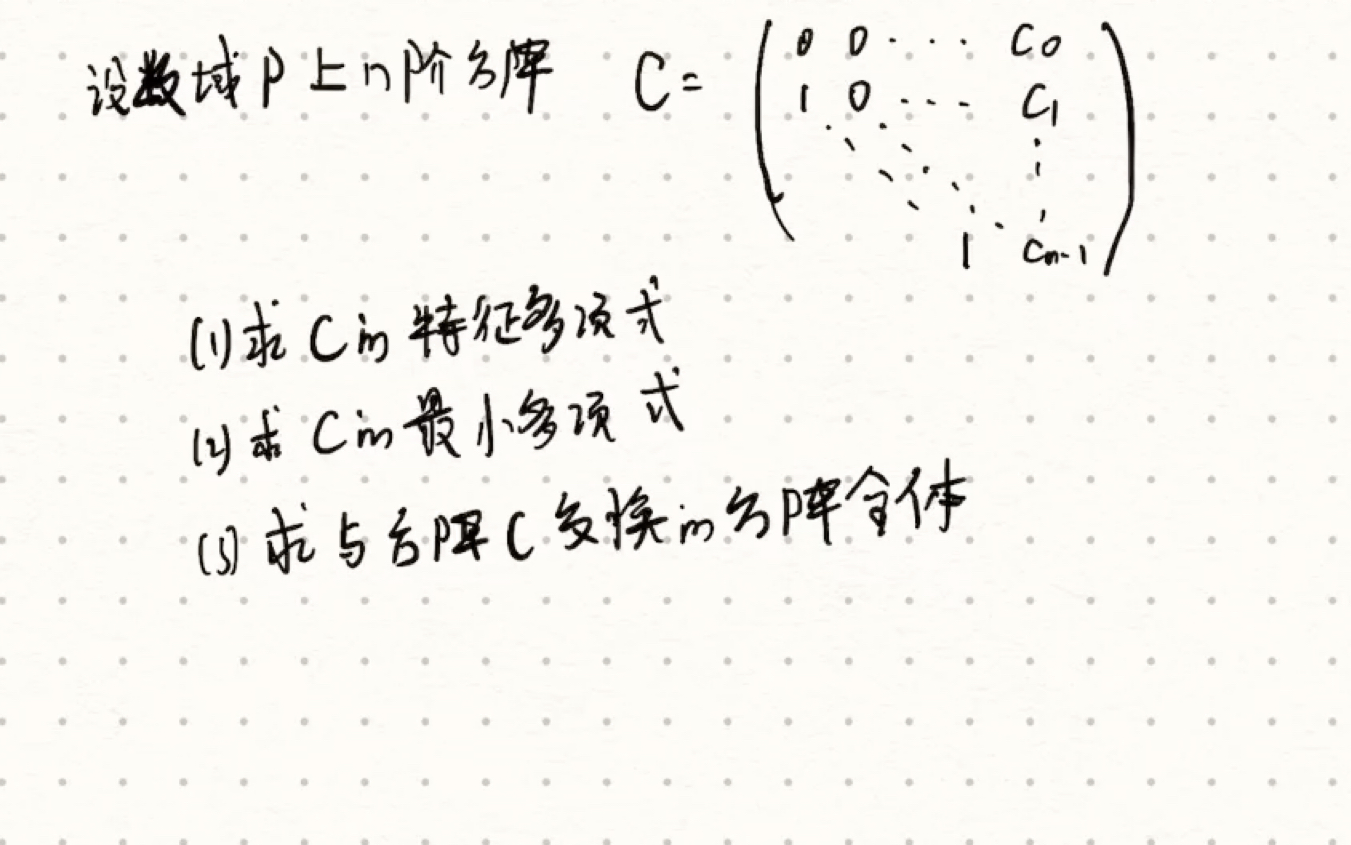 设数域P上n阶方阵 C=
0 0 ... C₀
1 0 ... C₁
1 Cₙ₋₁
(1)求C的特征多项式
(2)求C的最小多项式
(3)求与方阵C交换的方阵全体